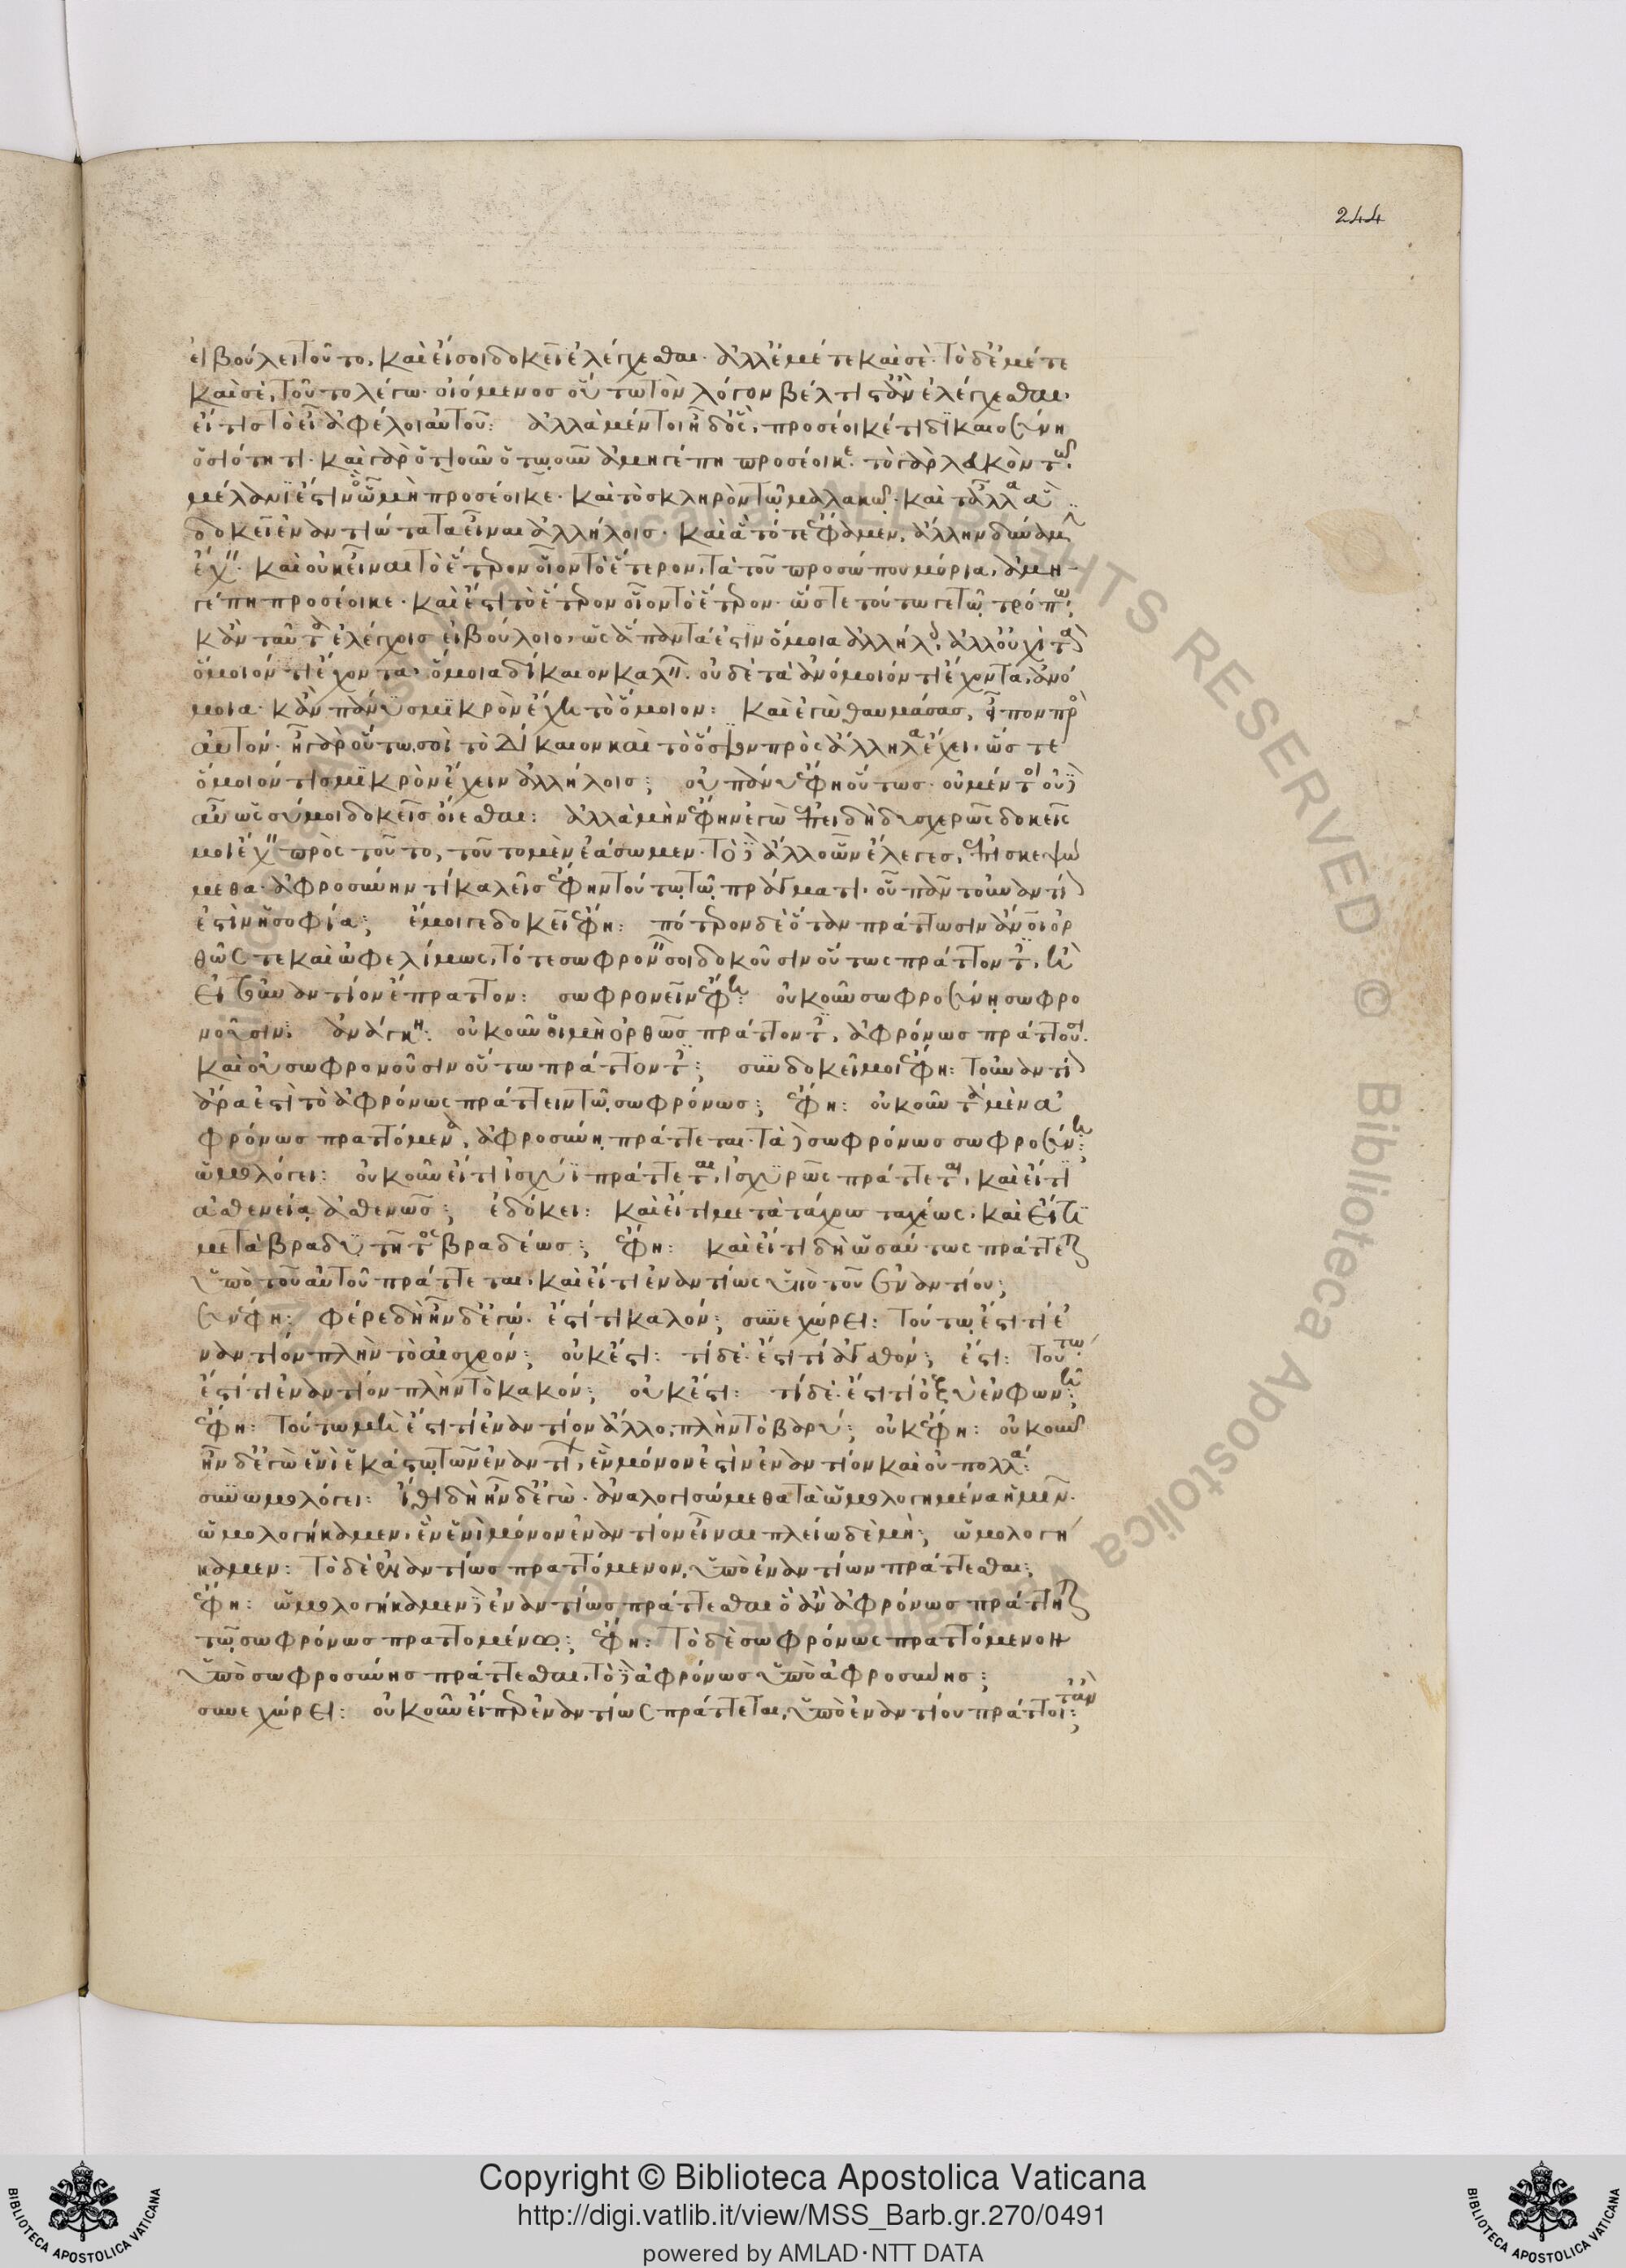 244
εἰ βούλει τοῦτο, καὶ εἴ σοι δοκεῖ ἐλέγχεσθαι· ἀλλ' ἐμέ τε καὶ σέ· τὸ δ' ἐμέ τε
καὶ σὲ, τοῦτο λέγω· οἰόμενος οὕτω τὸν λόγον βέλτιστ' ἂν ἐλέγχεσθαι·
εἴ τις τὸ εἴ ἀφέλοι αὐτοῦ: ἀλλὰ μέντοι ἦ δ' ὅς, προσέοικέ τι δικαιοσύνη
ὁσιότητι· καὶ γὰρ ὁτιοῦν ὁτωοῦν ἀμηγέπη προσέοικε· τὸ γὰρ λευκὸν τῶ
μέλανι ἔστιν ὃ ὧ μὴ προσέοικε· καὶ τὸ σκληρὸν τῶ μαλακῶ· καὶ τἆλλα ἃ
δοκεῖ ἐναντιώτατα εἶναι ἀλλήλοις· καὶ ἃ τότε ἔφαμεν, ἄλλην δύναμιν
ἔχειν· καὶ οὐκ εἶναι τὸ ἕτερον οἷον τὸ ἕτερον, τὰ τοῦ προσώπου μόρια, ἀμη-
γέπη προσέοικε· καὶ ἔστι τὸ ἕτερον οἷον τὸ ἕτερον· ὥστε τούτω γε τῶ τρόπω
κἂν ταῦτα ἐλέγχοις εἰ βούλοιο, ὡς ἅπαντά ἐστιν ὅμοια ἀλλήλοις, ἀλλ' οὐχὶ τὰ
ὅμοιόν τι ἔχοντα, ὅμοια δίκαιον καλεῖν· οὐδὲ τὰ ἀνόμοιόν τι ἔχοντα, ἀνό
μοια· κἂν πάνυ σμικρὸν ἔχη τὸ ὅμοιον: καὶ ἐγὼ θαυμάσας, εἶπον πρὸς
αὐτόν· ἦ γὰρ οὕτω σοὶ τὸ δίκαιον καὶ τὸ ὅσιον πρὸς ἄλληλα ἔχει, ὥστε
ὅμοιόν τι σμικρὸν ἔχειν ἀλλήλοις; οὐ πάνυ ἔφη οὕτως· οὐ μέντοι οὐδὲ
αὖ ὡς σύ μοι δοκεῖς οἴεσθαι: ἀλλὰ μὴν ἔφην ἐγὼ ἐπειδὴ δυσχερῶς δοκεῖς
μοι ἔχειν πρὸς τοῦτο, τοῦτο μὲν ἐάσωμεν· τὸ δὲ ἄλλο ὧν ἔλεγες, ἐπισκεψώ
μεθα· ἀφροσύνην τί καλεῖς ἔφην τούτω τῶ πράγματι· οὐ πᾶν τοὐναντίον
ἐστὶν ἡ σοφία; ἔμοιγε δοκεῖ ἔφη: πότερον δὲ ὅταν πράττωσιν ἄνθρωποι ὀρ
θῶς τε καὶ ὠφελίμως, τότε σωφρονεῖν σοι δοκοῦσιν οὕτως πράττοντες, ἢ
εἰ τοὐναντίον ἔπραττον: σωφρονεῖν ἔφη: οὐκοῦν σωφροσύνη σωφρο
νοῦσιν: ἀνάγκη: οὐκοῦν οἱ μὴ ὀρθῶς πράττοντες, ἀφρόνως πράττουσι·
καὶ οὐ σωφρονοῦσιν οὕτω πράττοντες; συνδοκεῖ μοι ἔφη: τοὐναντίον
ἄρα ἐστὶ τὸ ἀφρόνως πράττειν τῶ σωφρόνως; ἔφη: οὐκοῦν τὰ μὲν ἀ
φρόνως πραττόμενα, ἀφροσύνη πράττεται· τὰ δὲ σωφρόνως σωφροσύνη;
ὡμολόγει: οὐκοῦν εἴ τι ἰσχύϊ πράττεται, ἰσχυρῶς πράττεται, καὶ εἴ τι
ἀσθενεία ἀσθενῶς; ἐδόκει: καὶ εἴ τι μετὰ τάχους ταχέως, καὶ εἴ τι
μετὰ βραδυτῆτος βραδέως; ἔφη: καὶ εἴ τι δὴ ὡσαύτως πράττεται
ὑπὸ τοῦ αὐτοῦ πράττεται, καὶ εἴ τι ἐναντίως ὑπὸ τοῦ ἐναντίου;
συνέφη: φέρε δὴ ἦν δ' ἐγώ· ἔστι τι καλόν; συνεχώρει: τούτω ἔστι τι ἐ
ναντίον πλὴν τὸ αἰσχρόν; οὐκ ἔστι: τί δέ· ἔστι τι ἀγαθόν; ἔστι: τούτω
ἔστι τι ἐναντίον πλὴν τὸ κακόν; οὐκ ἔστι: τί δέ· ἔστι τι ὀξὺ ἐν φωνῆ;
ἔφη: τούτω μὴ ἔστι τι ἐναντίον ἄλλο, πλὴν τὸ βαρύ; οὐκ ἔφη: οὐκοῦν
ἦν δ' ἐγὼ ἑνὶ ἑκάστω τῶν ἐναντίων, ἓν μόνον ἐστὶν ἐναντίον καὶ οὐ πολλά:
συνωμολόγει: ἴθι δὴ ἦν δ' ἐγὼ· ἀναλογισώμεθα τὰ ὡμολογημένα ἡμῖν·
ὡμολογήκαμεν, ἓν ἑνὶ μόνον ἐναντίον εἶναι πλείω δὲ μή; ὡμολογή
καμεν: τὸ δὲ ἐναντίως πραττόμενον, ὑπὸ ἐναντίων πράττεσθαι;
ἔφη: ὡμολογήκαμεν δὲ ἐναντίως πράττεσθαι ὃ ἂν ἀφρόνως πράττηται
τῶ σωφρόνως πραττομένω; ἔφη: τὸ δὲ σωφρόνως πραττόμενον
ὑπὸ σωφροσύνης πράττεσθαι, τὸ δὲ ἀφρόνως ὑπὸ ἀφροσύνης;
συνεχώρει: οὐκοῦν εἴπερ ἐναντίως πράττεται, ὑπὸ ἐναντίου πράττοιτ' ἄν;
Copyright © Biblioteca Apostolica Vaticana
http://digi.vatlib.it/view/MSS_Barb.gr.270/0491
powered by AMLAD·NTT DATA